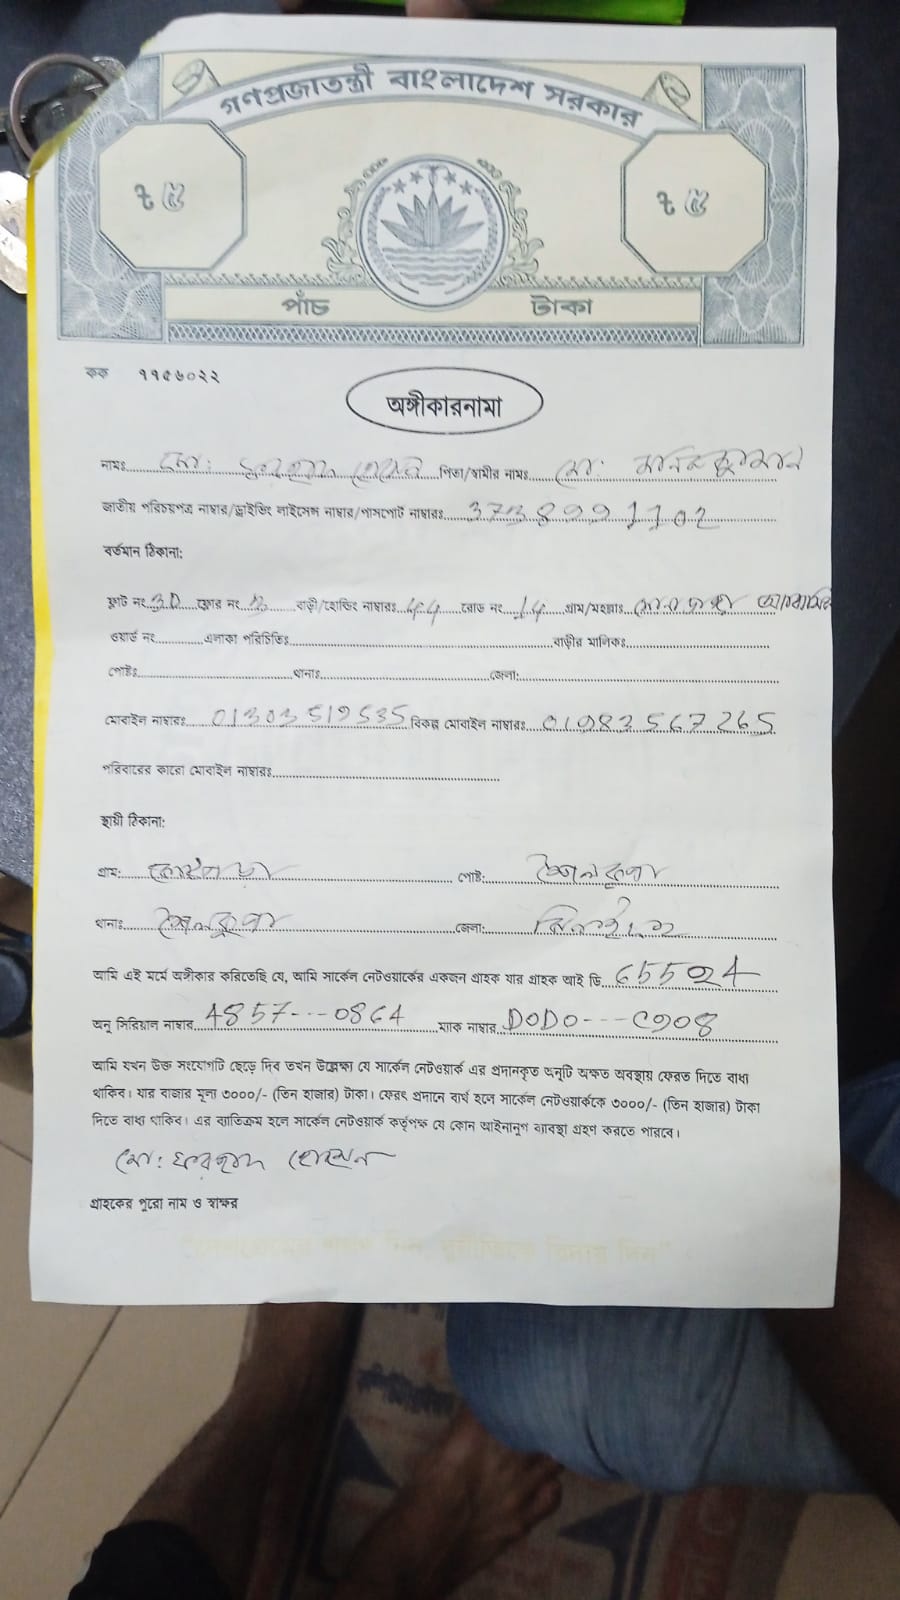 গণপ্রজাতন্ত্রী বাংলাদেশ সরকার
৳ ৫ ৳ ৫
পাঁচ টাকা
কক ১১৫৬০২২
অঙ্গীকারনামা
নামঃ মো: হোসেন পিতা/স্বামীর নামঃ মো:
জাতীয় পরিচয়পত্র নাম্বার/ড্রাইভিং লাইসেন্স নাম্বার/পাসপোর্ট নাম্বারঃ 3738991102
বর্তমান ঠিকানা:
ফ্লাট নং 3D ফ্লোর নং বাড়ী/হোল্ডিং নাম্বারঃ 44 রোড নং 14 গ্রাম/মহল্লাঃ আবাসিক
ওয়ার্ড নং এলাকা পরিচিতিঃ বাড়ীর মালিকঃ
পোষ্টঃ থানাঃ জেলা:
মোবাইল নাম্বারঃ 01303519535 বিকল্প মোবাইল নাম্বারঃ 01983567265
পরিবারের কারো মোবাইল নাম্বারঃ
স্থায়ী ঠিকানা:
গ্রাম: পোষ্ট: শৈলকুপা
থানাঃ শৈলকুপা জেলা: ঝিনাইদহ
আমি এই মর্মে অঙ্গীকার করিতেছি যে, আমি সার্কেল নেটওয়ার্কের একজন গ্রাহক যার গ্রাহক আই ডি 65524
অনু সিরিয়াল নাম্বার 4857---0864 ম্যাক নাম্বার D0D0---C908
আমি যখন উক্ত সংযোগটি ছেড়ে দিব তখন উল্লেক্ষ্য যে সার্কেল নেটওয়ার্ক এর প্রদানকৃত অনুটি অক্ষত অবস্থায় ফেরত দিতে বাধ্য
থাকিব। যার বাজার মূল্য ৩০০০/- (তিন হাজার) টাকা। ফেরৎ প্রদানে ব্যর্থ হলে সার্কেল নেটওয়ার্ককে ৩০০০/- (তিন হাজার) টাকা
দিতে বাধ্য থাকিব। এর ব্যতিক্রম হলে সার্কেল নেটওয়ার্ক কর্তৃপক্ষ যে কোন আইনানুগ ব্যাবস্থা গ্রহণ করতে পারবে।
মো: ফরহাদ হোসেন
গ্রাহকের পুরো নাম ও স্বাক্ষর